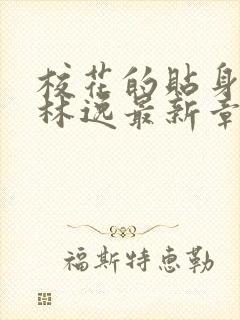 校花的貼身
林逸最新章
福斯特惠勒